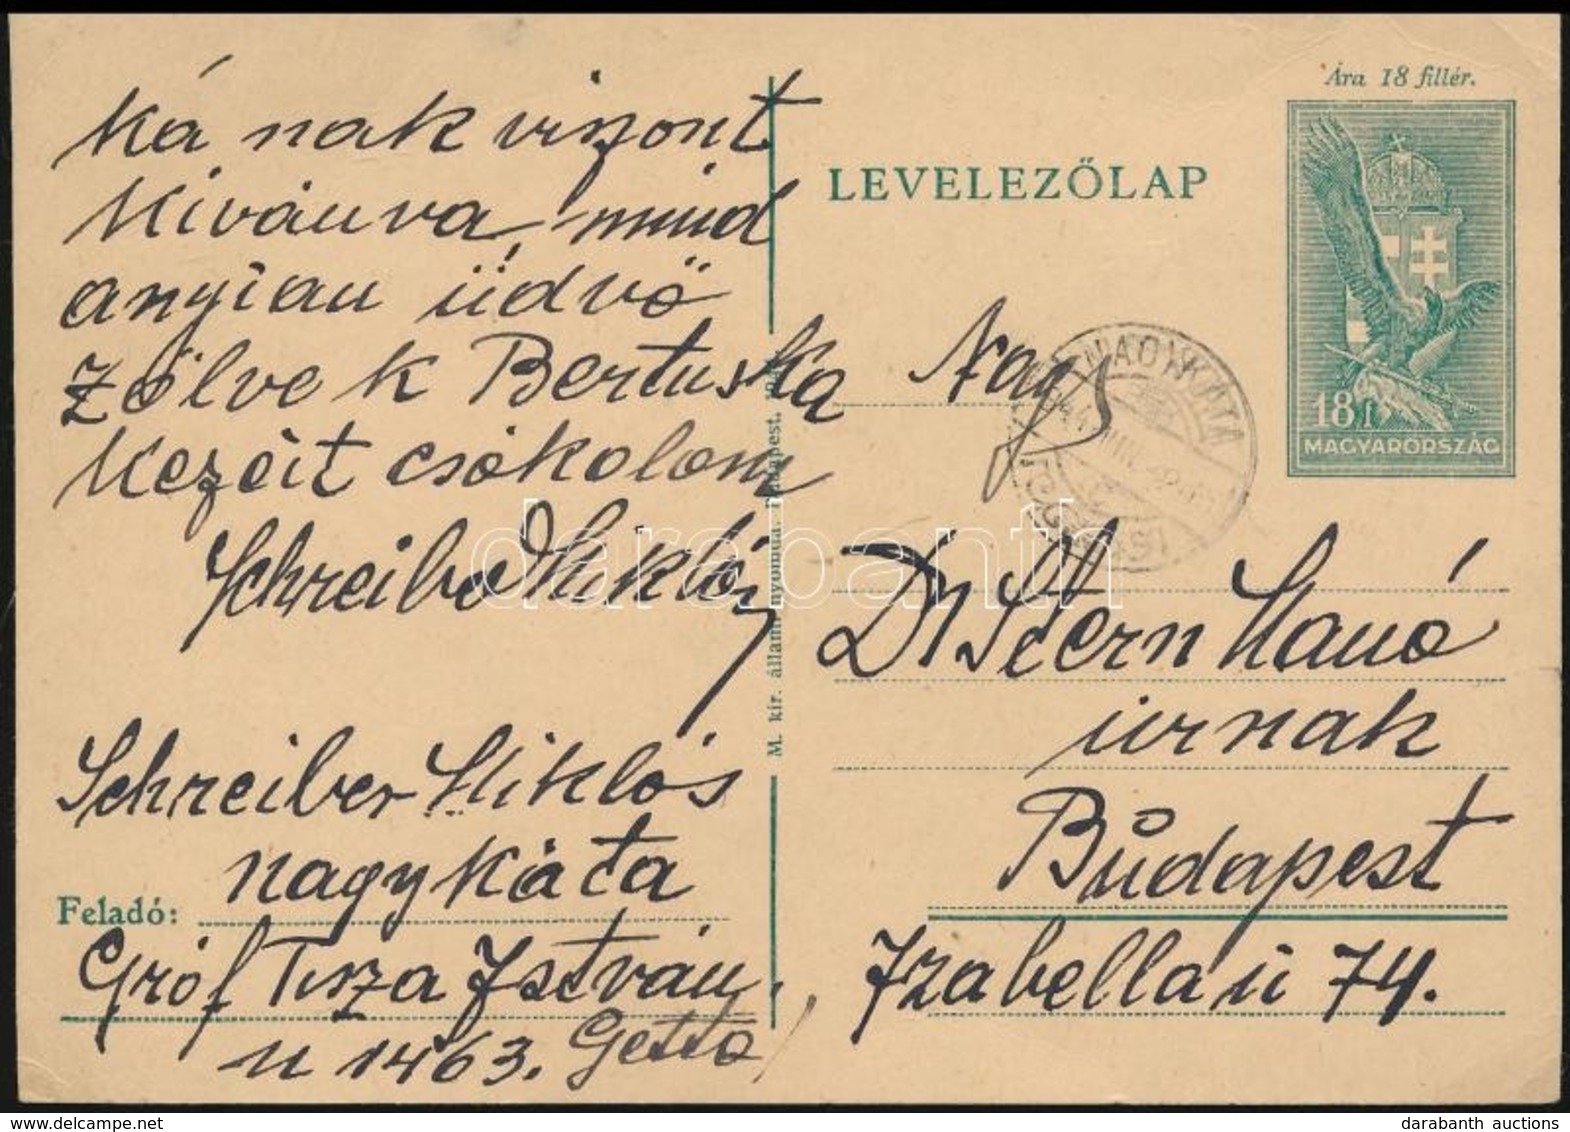 ká nak viszont
Kivánva, mind
anyian üdvö
zölve k Bertuska
Kezeit csókolom
Schreiber Miklós
Schreiber Miklós
nagykáta
Feladó:
Gróf Tisza István
u 1463. Getto
M. kir. állami nyomda. Budapest.
Ára 18 fillér.
LEVELEZŐLAP
18 f
MAGYARORSZÁG
NAGYKÁTA
Dr Stern Manó
úrnak
Budapest
Izabella ú 74.
darabanth
darabanth auctions